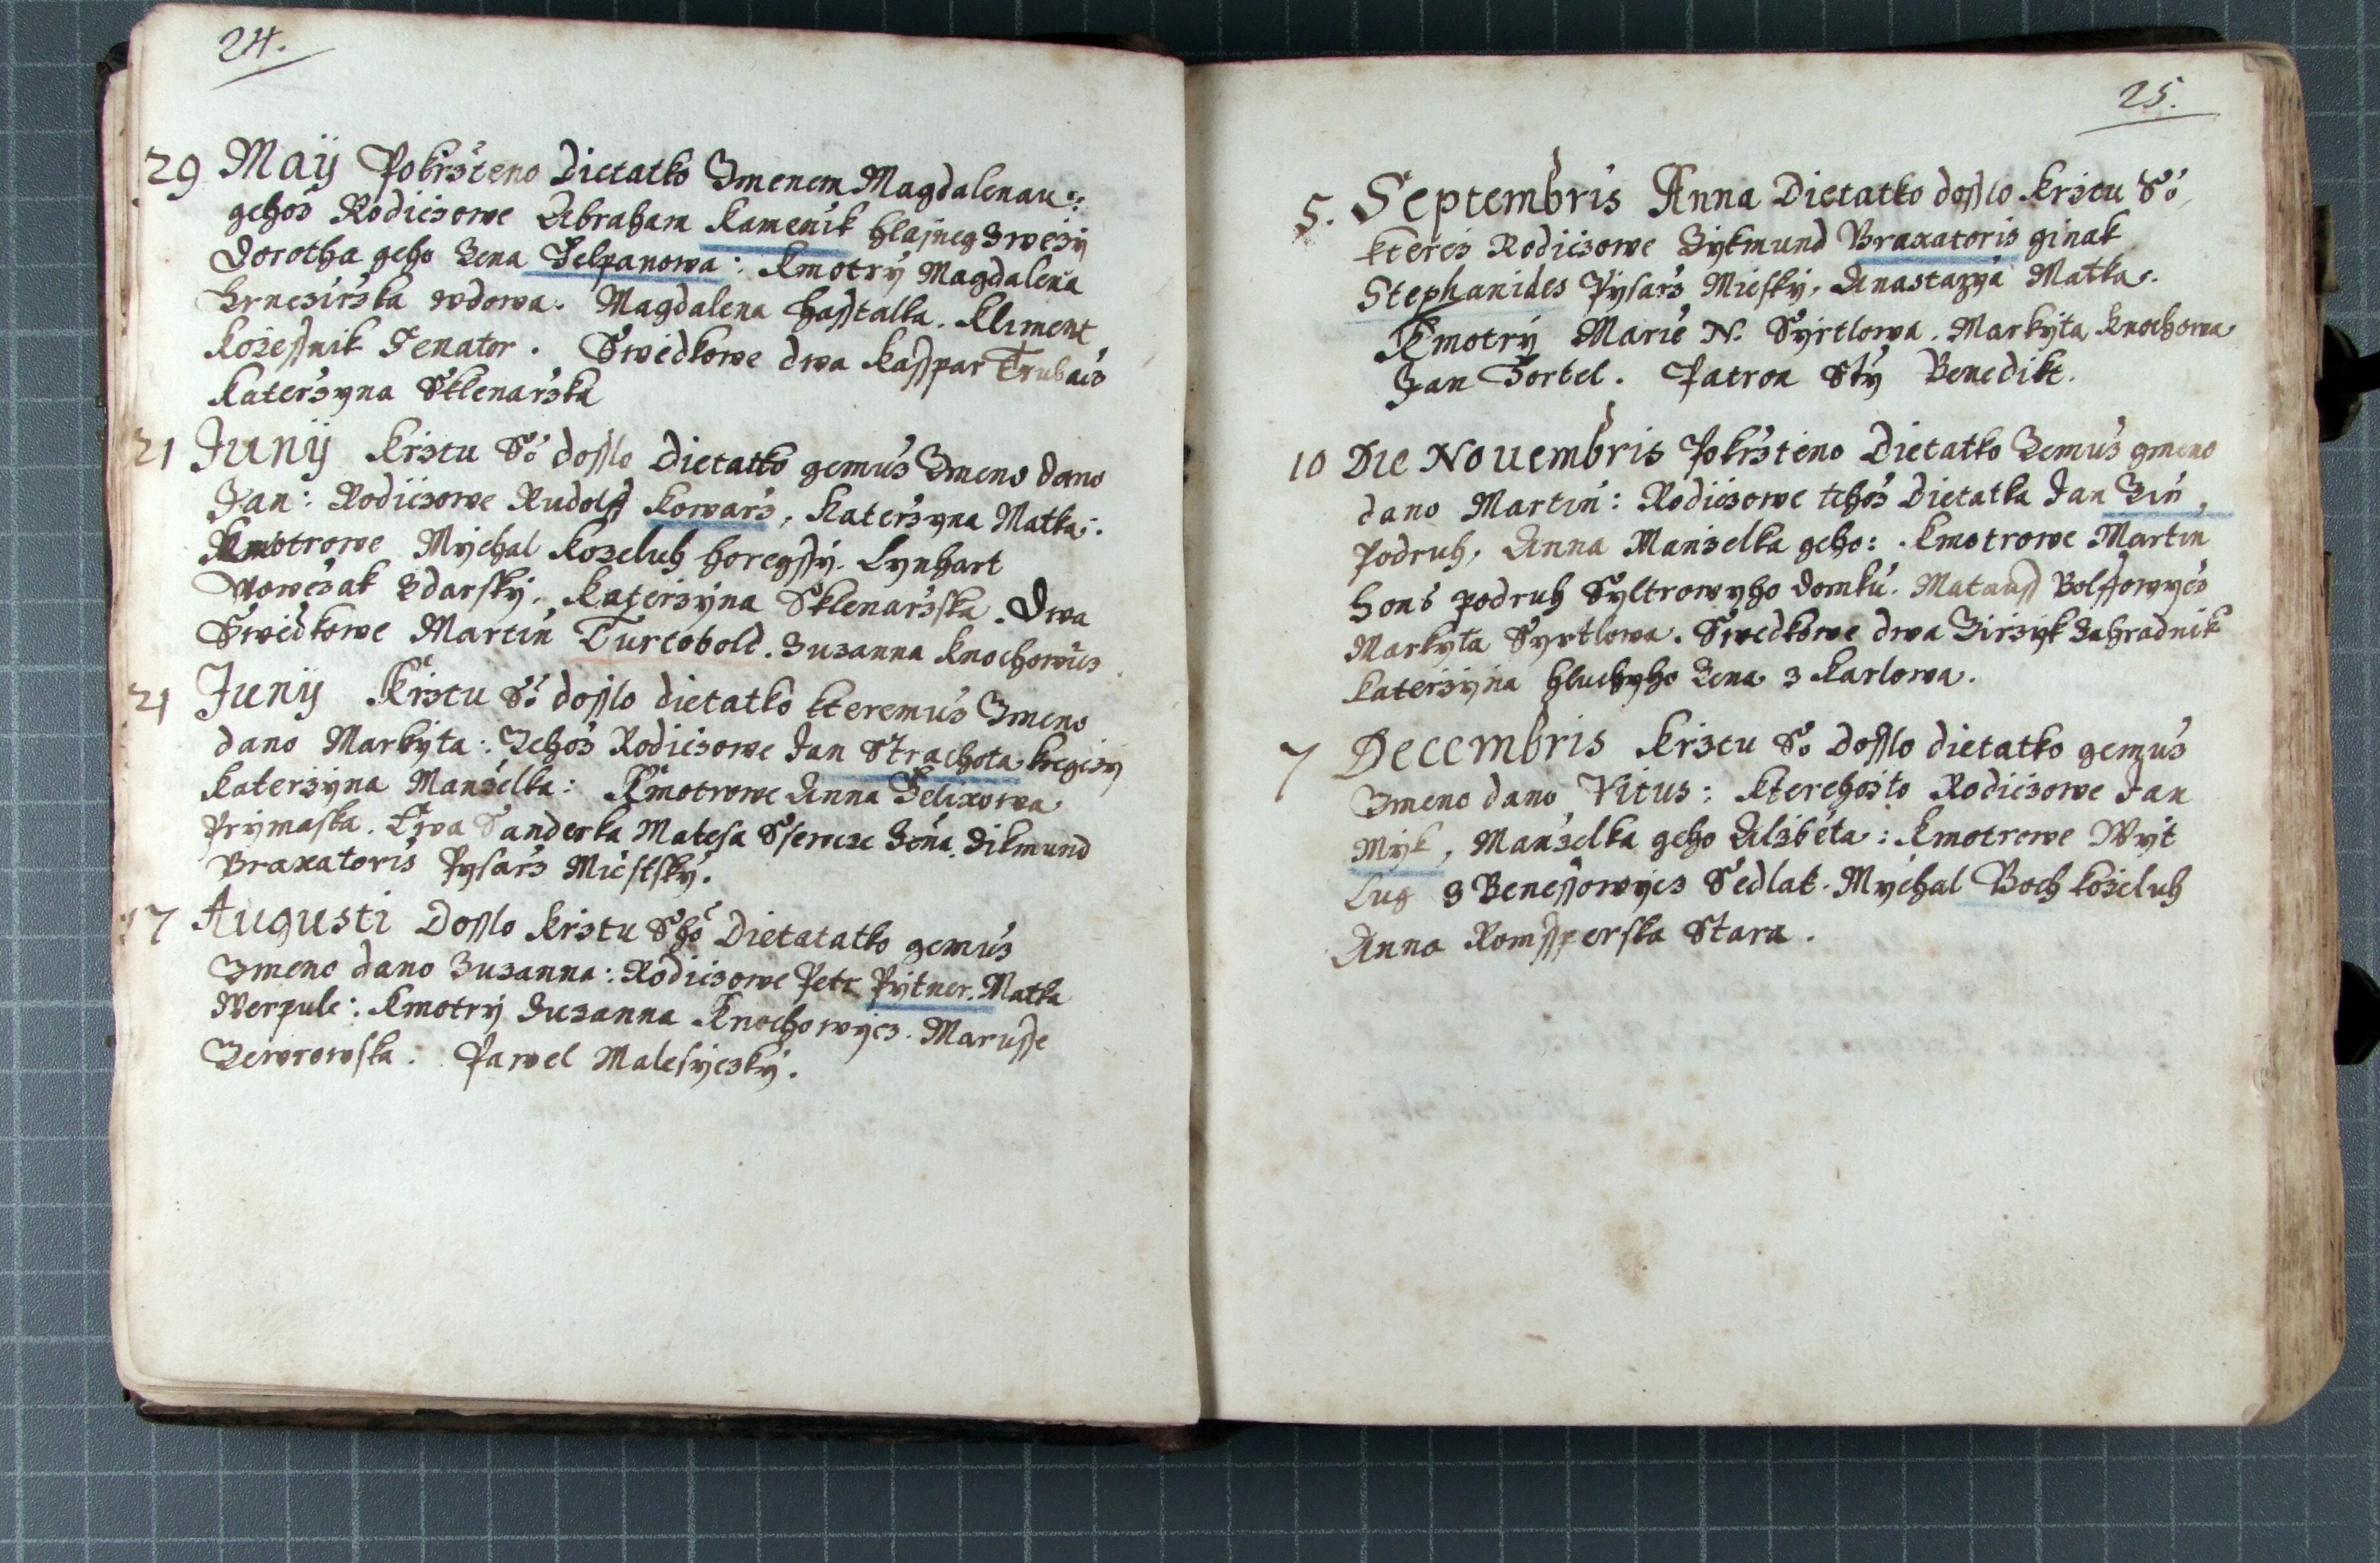 24.
29 Maÿ Pokrsteno Dietatko Jmenem Magdalenau:
gehoz Rodiczowe Abraham Kamenik
Dorotha geho Zena Felpanowa: Kmotrÿ Magdalena
wdowa. Magdalena hasstalka. Kliment
Kozessnik Senator. Swědkowe dwa Kasspar Trubacz
Katerzyna Sklenarzska
21 Junÿ Krztu So dosslo Dietatko gemuz Jmeno dano
Jan: Rodiczowe Rudolff Kowarz, Katerzyna Matka:
Kmotrowe Mychal Kozeluh horegssý. Lynhart
Nowczak Zdarskÿ. Katerzÿna Sklenarzska. Dwa
Swědkowe Martin Turcobold. Zuzanna Knochowicz
21 Junÿ Krztu So dosslo dietatko kteremuz Jmeno
dano Markÿta: Jehoz Rodiczowe Jan Strachota kregczy
Katerzyna Manzelka: Kmotrowe Anna Felixowa
Prÿmaska. Ewa Sanderka Matesa Ssewcze Zena. Zikmund
Braxatoris Pÿsarz Miestskÿ.
17 Augusti Dosslo Krztu Sho Dietatatko gemuz
Jmeno dano Zuzanna: Rodiczowe Petr Pÿtner. Matka
Werpule: Kmotrÿ Zuzanna Knochowÿcz. Marusse
Zewrowska. Pawel Malesÿczkÿ.
25.
5. Septembris Anna Dietatko dosslo Krztu So
kterez Rodiczowe Zÿkmund Braxatoris ginak
Stephanides Pÿsarz Mieskÿ, Anastazya Matka.
Kmotrÿ Marie N. Sÿrtlowa. Markÿta Knochowa
Jan Fortel. Patron Stÿ Benedikt.
10 Die Nouembris Pokrzteno Dietatko Gemuz gmeno
dano Martin: Rodiczowe tehoz Dietatka Jan Zin,
Podruh, Anna Manzelka geho: Kmotrowe Martin
Hons podruh Sÿltrowyho domku. Matauss Bolffowÿcz
Markÿta Syrtlowa. Swedkowe dwa Jirzyk Zahradnik
Katerzÿna Hluchyho Zena z Karlowa.
7 Decembris Krztu So dosslo dietatko gemuz
Jmeno dano Vitus: Kterehozto Rodiczowe Jan
Mÿk, Manzelka geho Alzbeta: Kmotrowe Wÿt
Lug z Benessowÿcz Sedlak. Mÿchal Boch kozeluh
Anna Romssperska Stara.